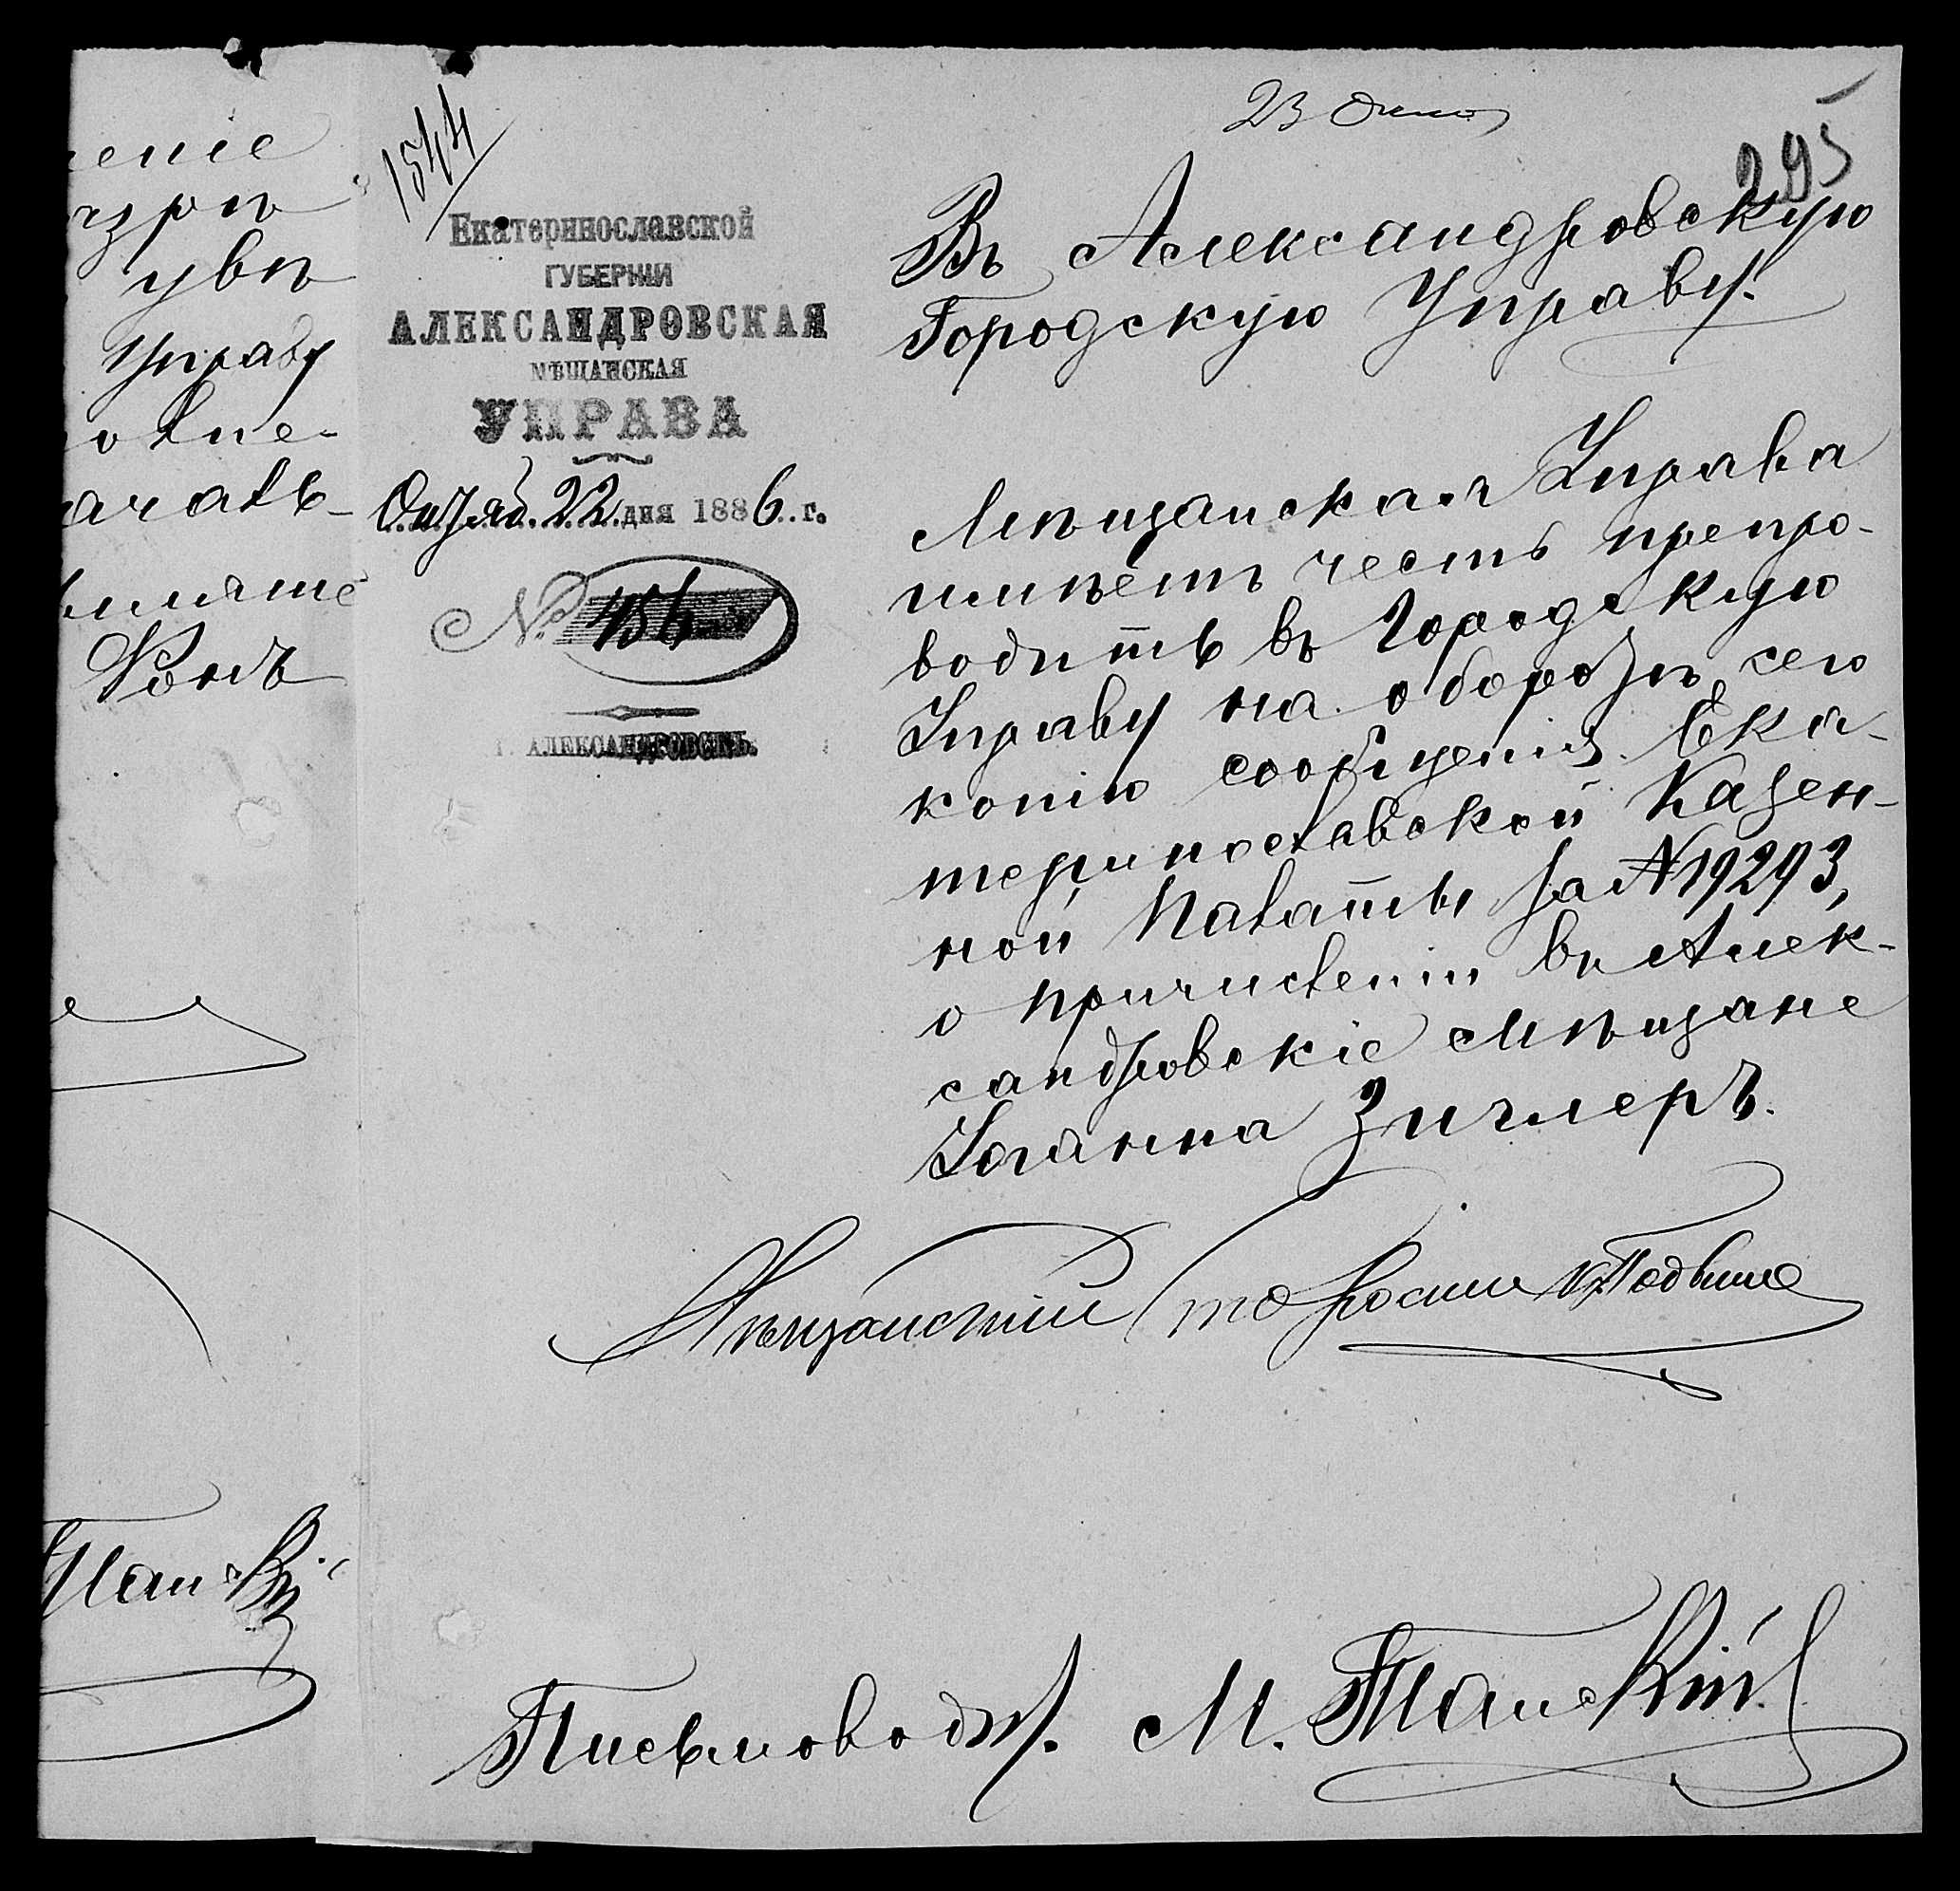 еніе
увѣ
Управу
ачаль-
1544
Екатеринославской
ГУБЕРНІИ
АЛЕКСАНДРОВСКАЯ
МѢЩАНСКАЯ
УПРАВА
Октяб. 22 дня 1886 г.
№ 456
Г. АЛЕКСАНДРОВСКЪ.
23 Окт
295
Въ Александровскую
Городскую Управу.
Мѣщанская Управа
имѣетъ честь препро-
водить въ Городскую
Управу на оборотѣ сего
копію сообщенія Ека-
теринославской Казен-
ной Палаты за №19293,
о причисленіи въ Алек-
сандровскіе мѣщане
Іоганна Зиглеръ.
Мѣщанскій Староста
Письмоводит. М. Танскій